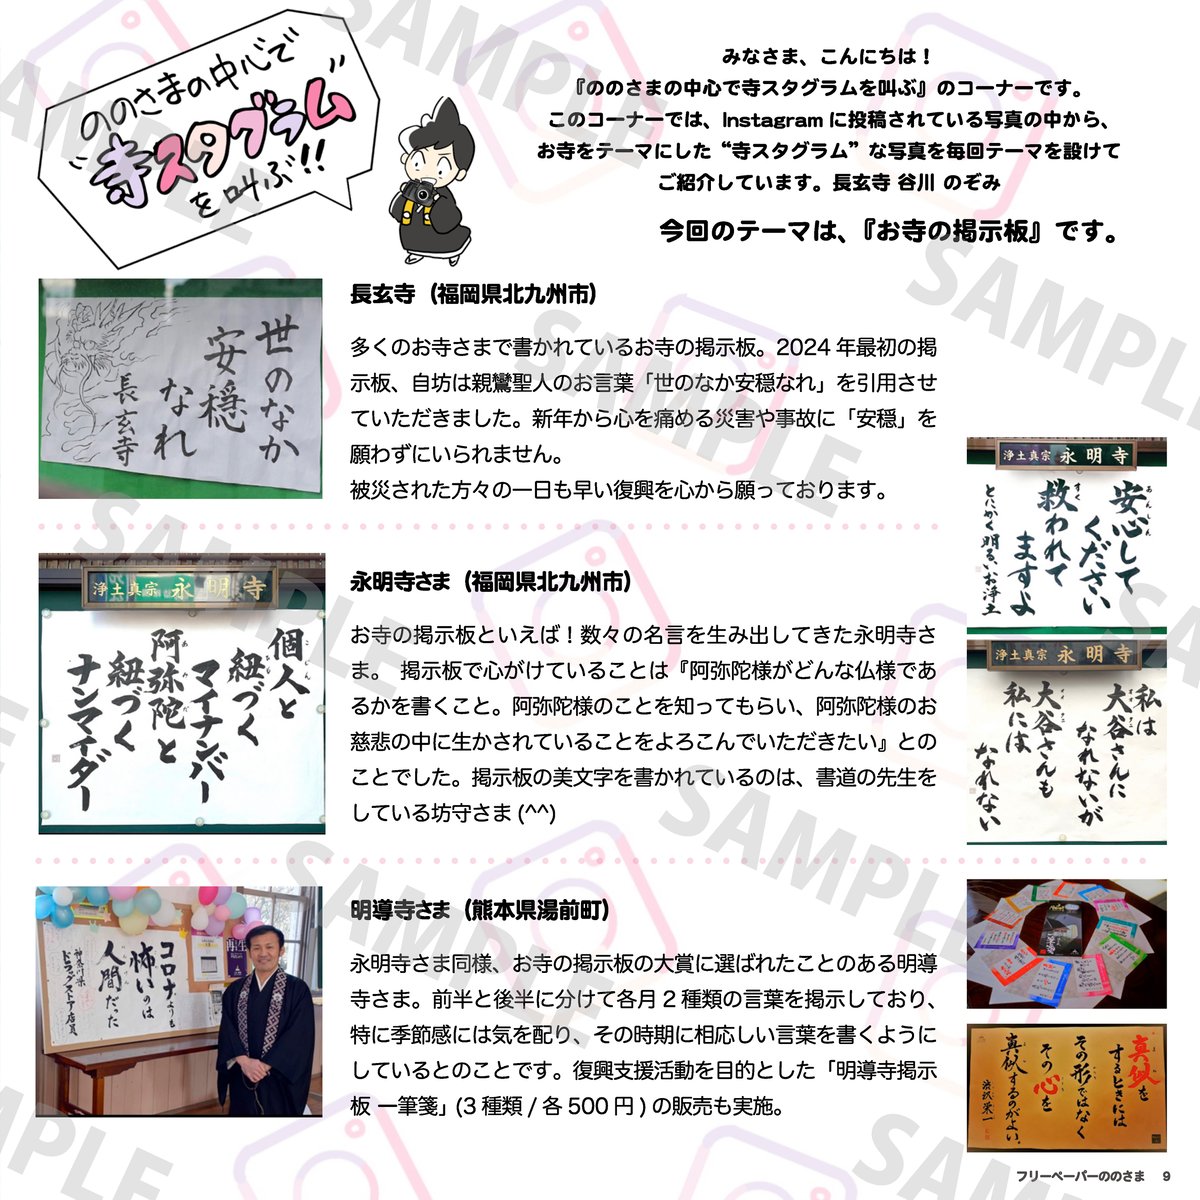 ののさまの中心で
"寺スタグラム"
を叫ぶ!!
みなさま、こんにちは！
『ののさまの中心で寺スタグラムを叫ぶ』のコーナーです。
このコーナーでは、Instagram に投稿されている写真の中から、
お寺をテーマにした“寺スタグラム”な写真を毎回テーマを設けて
ご紹介しています。長玄寺 谷川 のぞみ
今回のテーマは、『お寺の掲示板』です。
世のなか
安穏
なれ
長玄寺
長玄寺（福岡県北九州市）
多くのお寺さまで書かれているお寺の掲示板。2024 年最初の掲
示板、自坊は親鸞聖人のお言葉「世のなか安穏なれ」を引用させ
ていただきました。新年から心を痛める災害や事故に「安穏」を
願わずにいられません。
被災された方々の一日も早い復興を心から願っております。
浄土真宗 永明寺
個人と
紐づく
マイナンバー
阿弥陀と
紐づく
ナンマイダー
永明寺さま（福岡県北九州市）
お寺の掲示板といえば！数々の名言を生み出してきた永明寺さ
ま。 掲示板で心がけていることは『阿弥陀様がどんな仏様であ
るかを書くこと。阿弥陀様のことを知ってもらい、阿弥陀様のお
慈悲の中に生かされていることをよろこんでいただきたい』との
ことでした。掲示板の美文字を書かれているのは、書道の先生を
している坊守さま (^^)
浄土真宗 永明寺
安心して
ください
救われて
ますよ
とにかく明るいお浄土
浄土真宗 永明寺
私は
大谷さんに
なれないが
大谷さんも
私には
なれない
コロナよりも
怖いのは
人間だった
神奈川県
ドラッグストア店員
明導寺さま（熊本県湯前町）
永明寺さま同様、お寺の掲示板の大賞に選ばれたことのある明導
寺さま。前半と後半に分けて各月 2 種類の言葉を掲示しており、
特に季節感には気を配り、その時期に相応しい言葉を書くように
しているとのことです。復興支援活動を目的とした「明導寺掲示
板 一筆箋」(3 種類 / 各 500 円 ) の販売も実施。
真似を
するときには
その形ではなく
その心を
真似するのがよい。
渋沢栄一
フリーペーパーののさま 9
SAMPLE
SAMPLE
SAMPLE
SAMPLE
SAMPLE
SAMPLE
SAMPLE
SAMPLE
SAMPLE
SAMPLE